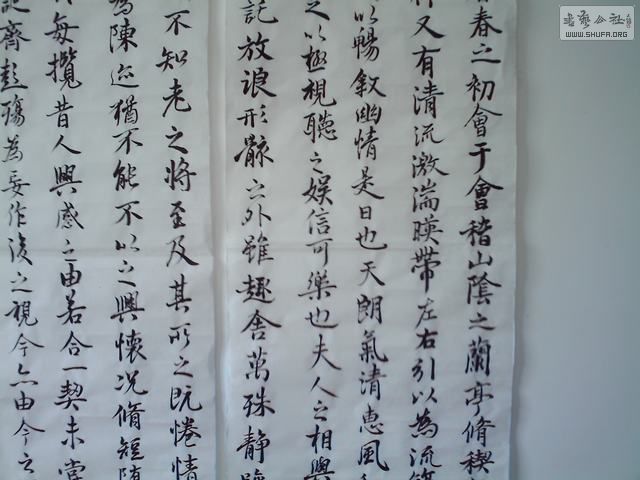 春之初會于會稽山陰之蘭亭脩稧
又有清流激湍暎帶左右引以為流
以暢敘幽情是日也天朗氣清惠風
之以極視聽之娛信可樂也夫人之相與
託放浪形骸之外雖趣舍萬殊靜
不知老之將至及其所之既惓情
為陳迹猶不能不以之興懷况脩短
每攬昔人興感之由若合一契未嘗
齊彭殤為妄作後之視今亦由今之
書藝公社
WWW.SHUFA.ORG